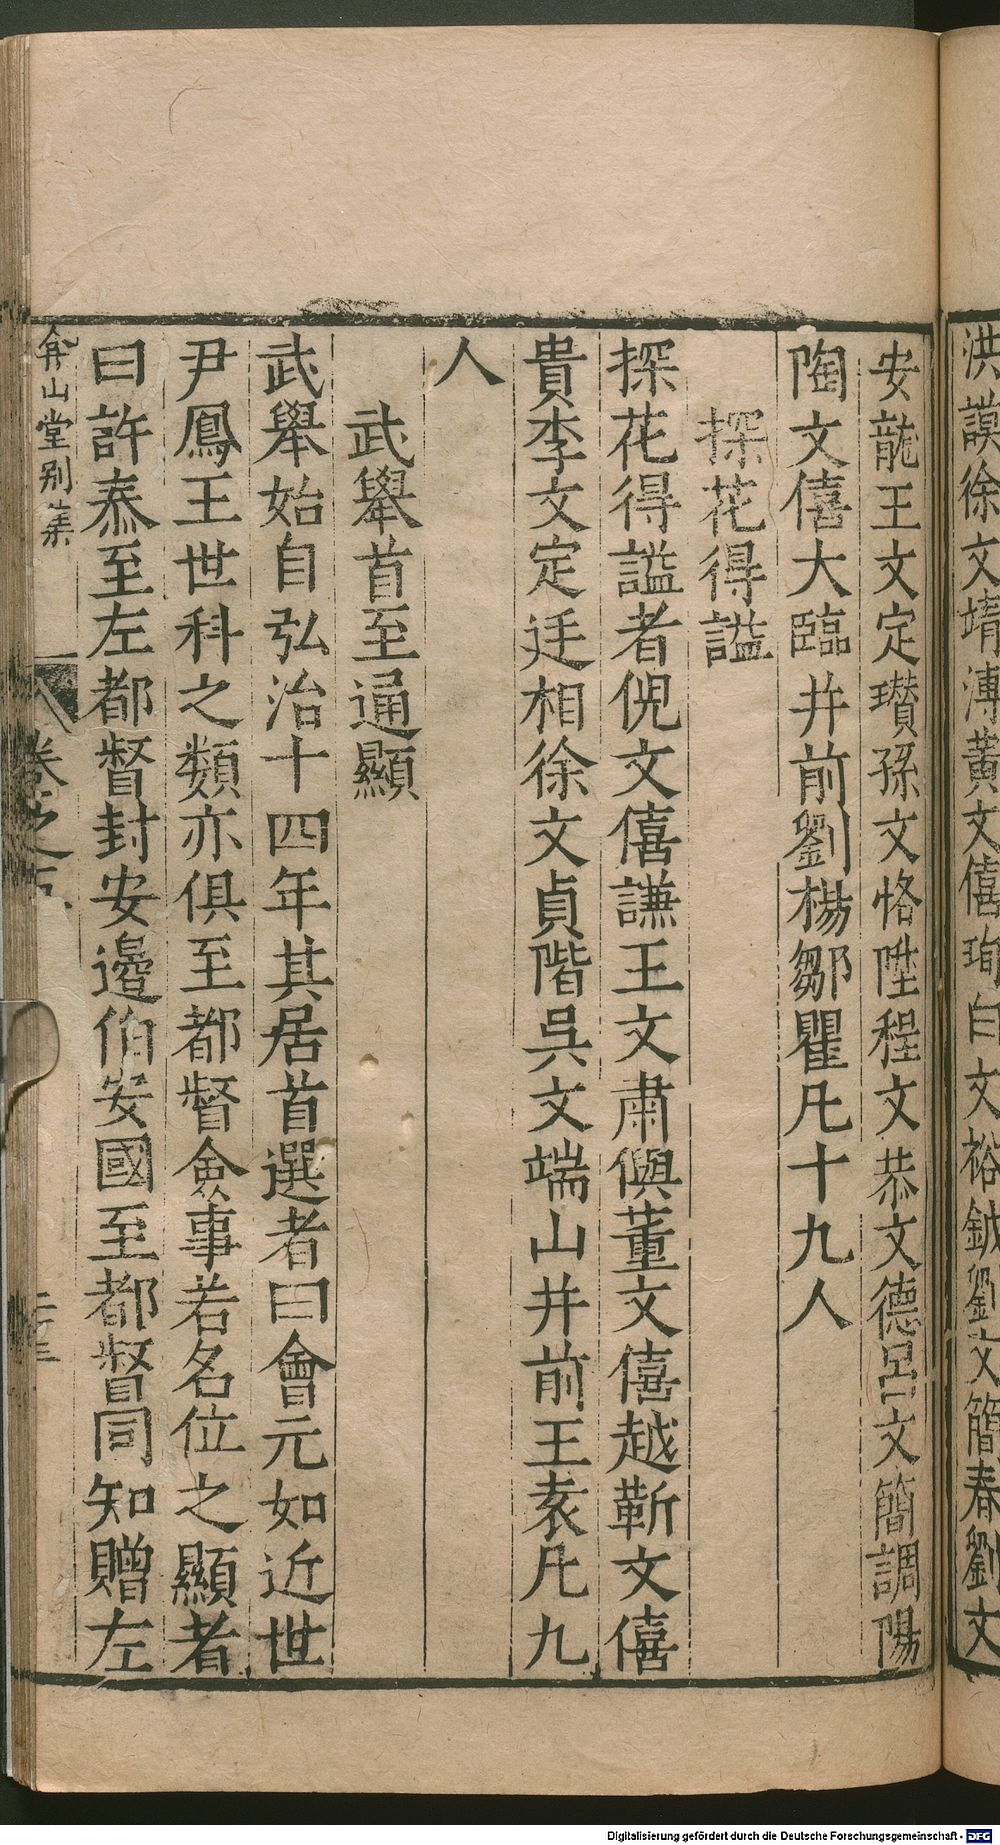 洪謨徐文靖溥黄文僖珣白文裕鉞劉文簡春劉文
安龍王文定瓚孫文恪陞程文恭文德呂文簡調陽
陶文僖大臨并前劉楊鄒瞿凡十九人
探花得謚
探花得謚者倪文僖謙王文肅㒜董文僖越靳文僖
貴李文定廷相徐文貞階吳文端山并前王袁凡九
人
武舉首至通顯
武舉始自弘治十四年其居首選者曰會元如近世
尹鳳王世科之類亦俱至都督僉事若名位之顯者
曰許泰至左都督封安邊伯安國至都督同知贈左
弇山堂别集
卷之五
Digitalisierung gefördert durch die Deutsche Forschungsgemeinschaft - DFG